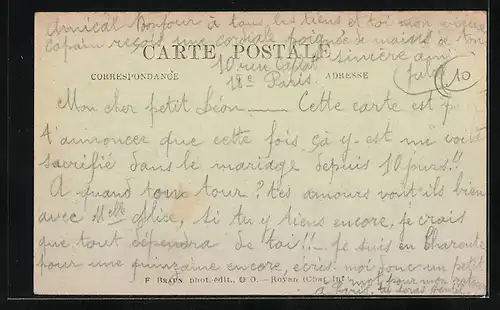 Amical Bonjour à tous les tiens et toi mon vieux
copain reçoit une cordiale poignée de mains de ton
CARTE POSTALE
sincère ami
10 rue
Jules
18e Paris.
CORRESPONDANCE
ADRESSE
10
Mon cher petit Léon ___ Cette carte est p
t'annoncer que cette fois çà y-est me voilà
sacrifié dans le mariage depuis 10 jours!!
A quand ton tour? tes amours vont-ils bien
avec Melle Alice, si tu y tiens encore, je crais
que tout dépendra de toi!! - Je suis en Charente
pour une quinzaine encore, écris moi donc un petit
mot pour mon
F. BRAUN phot. édit., & O. — Royan (Char. Inf.)
à Paris, tu seras